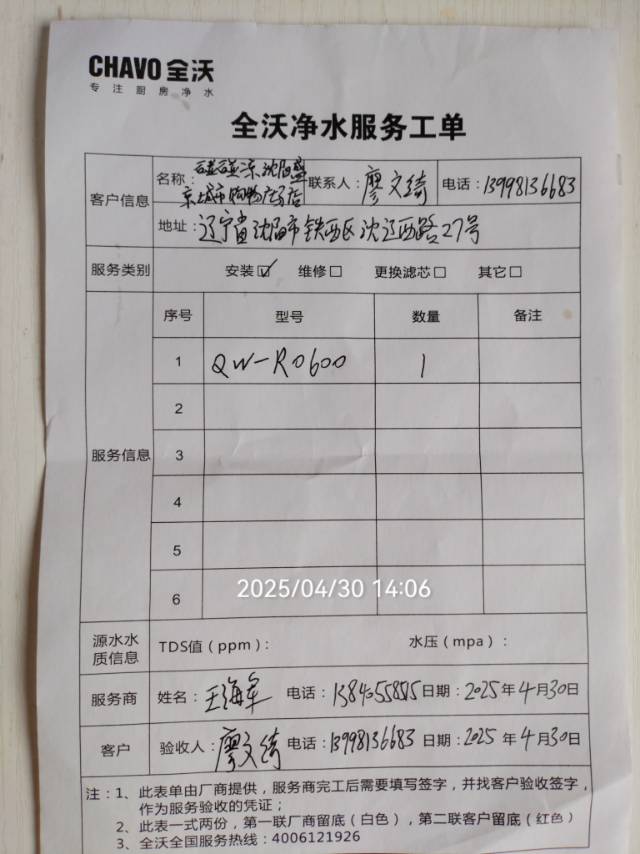 CHAVO 全沃
专注厨房净水
全沃净水服务工单
客户信息
名称：碰碰凉沈阳盛京龙城市购物广场店 联系人：廖文绮 电话：13998136683
地址：辽宁省沈阳市铁西区沈辽西路27号
服务类别 安装☑ 维修□ 更换滤芯□ 其它□
服务信息
序号 型号 数量 备注
1 QW-RO600 1
2
3
4
5
6
2025/04/30 14:06
源水水质信息 TDS值（ppm）： 水压（mpa）：
服务商 姓名：王海军 电话： 日期：2025年4月30日
客户 验收人：廖文绮 电话：13998136683 日期：2025年4月30日
注：1、此表单由厂商提供，服务商完工后需要填写签字，并找客户验收签字，
作为服务验收的凭证；
2、此表一式两份，第一联厂商留底（白色），第二联客户留底（红色）
3、全沃全国服务热线：4006121926